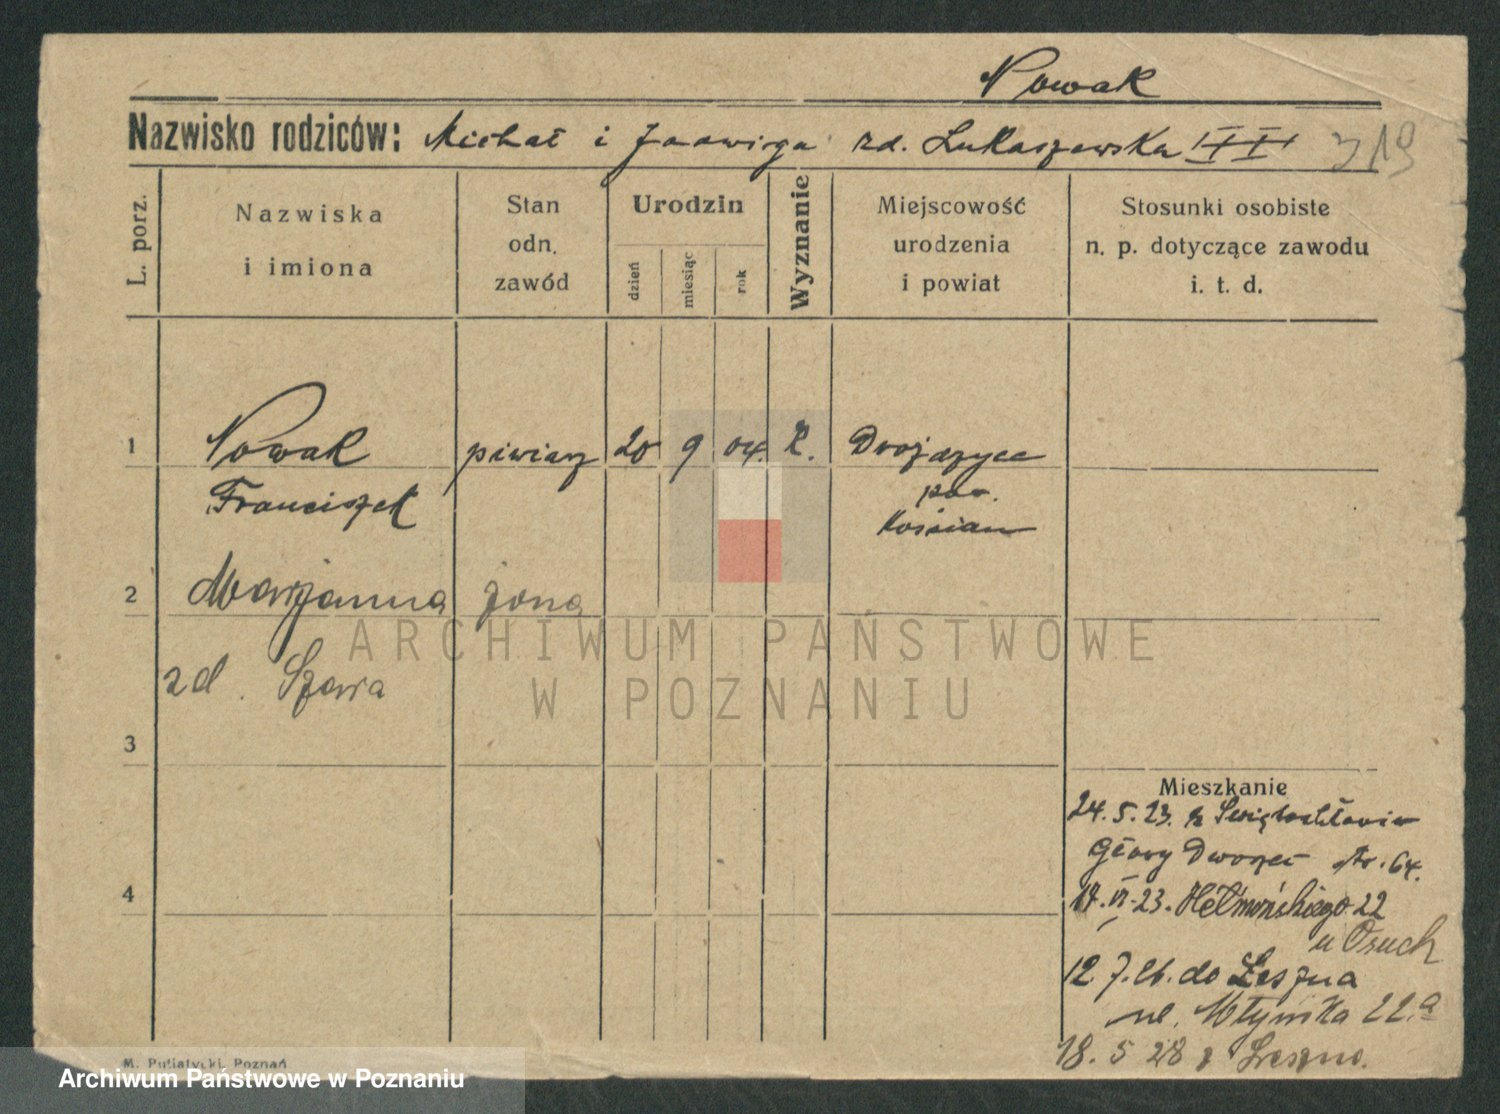 Nowak
Nazwisko rodziców: Michał i Jadwiga zd. Łukaszewska III 719
L. porz.
Nazwiska
i imiona
Stan
odn.
zawód
Urodzin
dzień
miesiąc
rok
Wyznanie
Miejscowość
urodzenia
i powiat
Stosunki osobiste
n. p. dotyczące zawodu
i. t. d.
1 Nowak piwiarz 20 9 04. K.
Franciszek pow.
Kościan
2 Marjanna żona
zd. Szava
ARCHIWUM PAŃSTWOWE
W POZNANIU
3
Mieszkanie
24.5.23. z
Główny Dworzec str. 64.
4
14.VI.23. Hełmońskiego 22
u Osuch
12.7.26. do Leszna
ul. Młyńska 22.a
18.5 28 z Leszna.
M. Putiatycki, Poznań
Archiwum Państwowe w Poznaniu